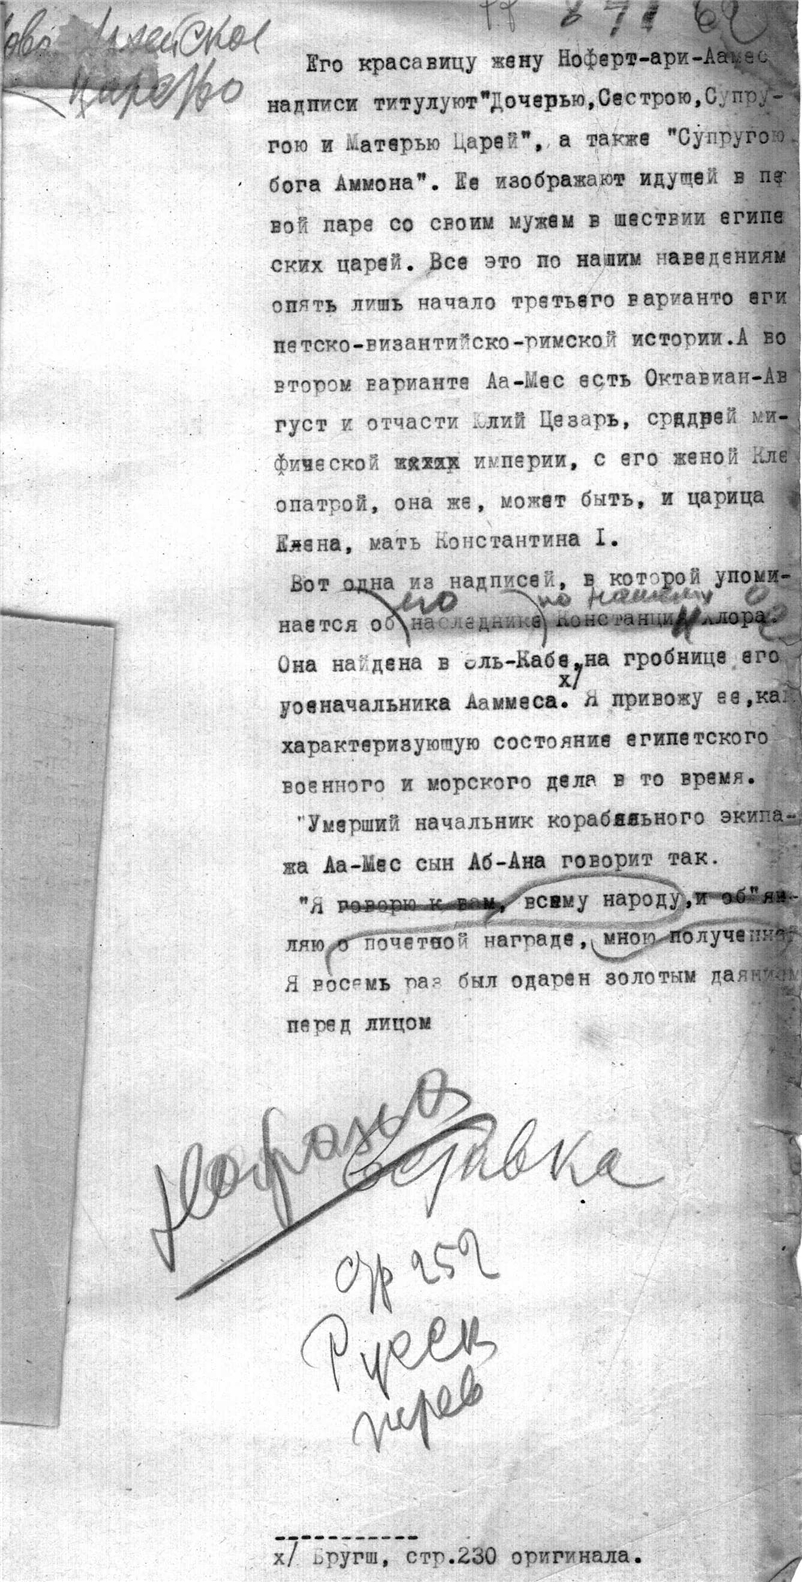 царство
Его красавицу жену Ноферт-ари-Аамес
надписи титулуют"Дочерью,Сестрою,Супру-
гою и Матерью Царей", а также "Супругою
бога Аммона". Ее изображают идущей в пер
вой паре со своим мужем в шествии египе
ских царей. Все это по нашим наведениям
опять лишь начало третьего варианто еги
петско-византийско-римской истории.А во
втором варианте Аа-Мес есть Октавиан-Ав
густ и отчасти Юлий Цезарь, средней ми-
фической империи, с его женой Кле
опатрой, она же, может быть, и царица
Елена, мать Константина I.
Вот одна из надписей, в которой упоми-
его по нашему
нается об наследнике Констанции Хлора.
Она найдена в Эль-Кабе,на гробнице его
х/
уоеначальника Ааммеса. Я привожу ее,как
характеризующую состояние египетского
военного и морского дела в то время.
"Умерший начальник корабельного экипа-
жа Аа-Мес сын Аб-Ана говорит так.
"Я говорю к вам, всему народу,и об"яв-
ляю о почетной награде, мною полученной
Я восемь раз был одарен золотым даянием
перед лицом
Набрано
вставка
стр 252
Русск
перев
х/ Бругш, стр.230 оригинала.